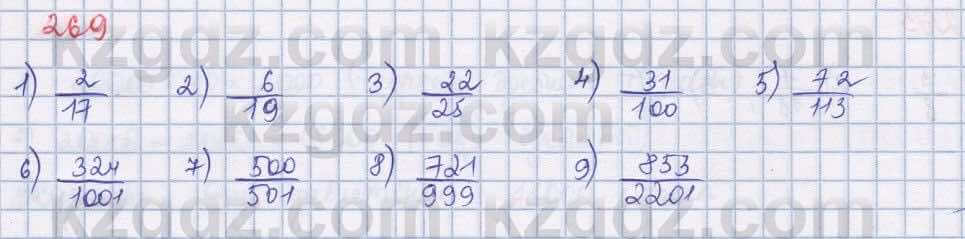 269
1) 2/17 2) 6/19 3) 22/25 4) 31/100 5) 72/113
6) 324/1001 7) 500/501 8) 721/999 9) 853/2201
kzgdz.com kzgdz.com
kzgdz.com
kzgdz.com kzgdz.com